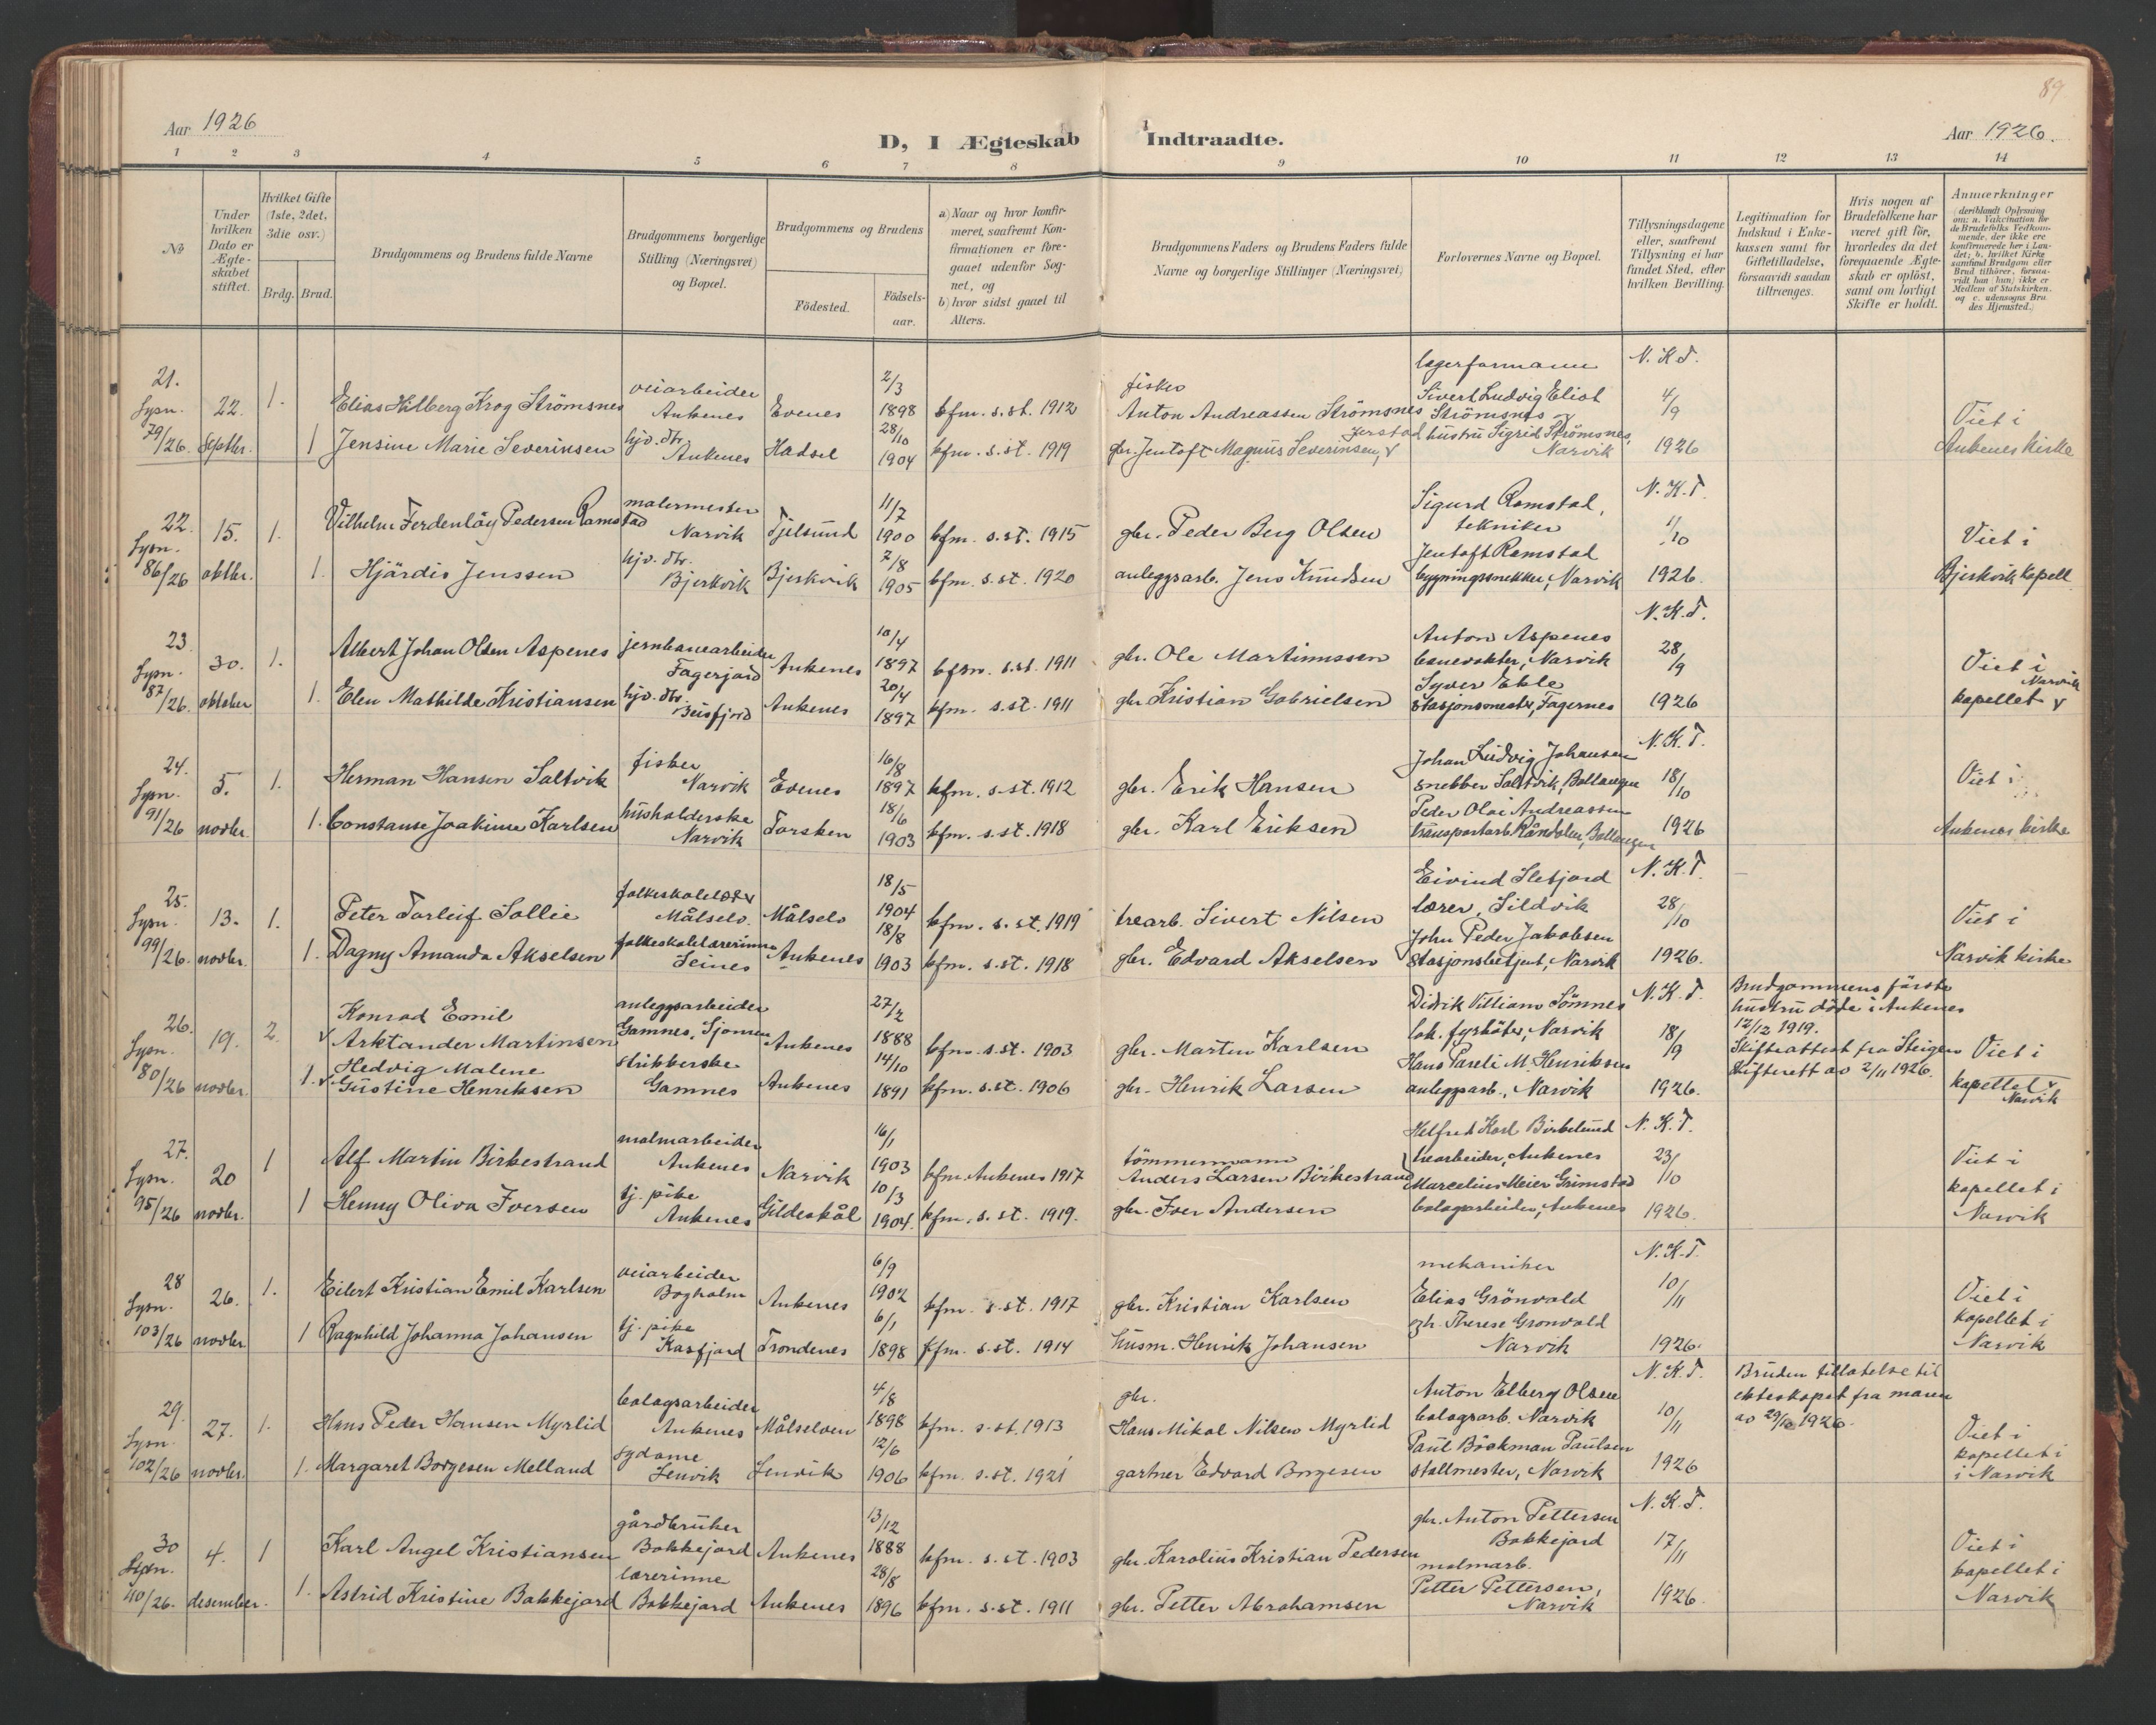 89
Aar 1926
D, I Ægteskab Indtraadte.
Aar 1926.
1 2 3 4 5 6 7 8 9 10 11 12 13 14
№
Under hvilken Dato er Ægteskabet stiftet.
Hvilket Gifte (1ste, 2det, 3die osv.)
Brdg. Brud.
Brudgommens og Brudens fulde Navne
Brudgommens borgerlige Stilling (Næringsvei) og Bopæl.
Brudgommens og Brudens
Födested.
Födsels-aar.
a) Naar og hvor konfirmeret, saafremt Konfirmationen er foregaaet udenfor Sognet, og
b) hvor sidst gaaet til Alters.
Brudgommens Faders og Brudens Faders fulde Navne og borgerlige Stillinger (Næringsvei)
Forlovernes Navne og Bopæl.
Tillysningsdagene eller, saafremt Tillysning ei har fundet Sted, efter hvilken Bevilling.
Legitimation for Indskud i Enkekassen samt for Giftetilladelse, forsaavidt saadan tiltrænges.
Hvis nogen af Brudefolkene har været gift för, hvorledes da det foregaaende Ægteskab er oplöst, samt om lovligt Skifte er holdt.
Anmærkninger
(deriblandt Oplysning om: a. Vakcination for de Brudefolks Vedkommende, der ikke ere konfirmerede her i Landet; b. hvilket Kirkesamfund Brudgom eller Brud tilhörer, forsaavidt han (hun) ikke er Medlem af Statskirken. og c. udensogns Brudes Hjemsted.)
21. Lysn. 79/26. 22. Septbr. 1.
Elias Hilberg Krog Strömsnes veiarbeider Ankenes Evenes 2/3 1898 kfm. s. st. 1912
fisker Anton Andreassen Strömsnes
lagerformann Sivert Ludvig Eliot Strömsnes
N. K. T. 4/9 1926
1 Jensine Marie Severinsen hjv. dtr. Ankenes Hadsel 28/10 1904 kfm. s. st. 1919
gbr. Jentoft Magnus Severinsen, Jerstad
hustru Sigrid Strömsnes, Narvik
Viet i Ankenes kirke
22. Lysn. 86/26 15. oktbr. 1.
Vilhelm Ferdenlöy Pedersen Ramstad malermester Narvik Tjelsund 11/7 1900 kfm. s. st. 1915
gbr. Peder Berg Olsen
Sigurd Ramstal, tekniker
N. K. T. 1/10 1926.
1. Hjärdis Jenssen hjv. dtr. Bjerkvik Bjerkvik 7/8 1905 kfm. s. st. 1920
anleggsarb. Jens Knudsen
Jentoft Ramstal bygningssnekker, Narvik
Viet i Bjerkvik kapell
23. Lysn. 87/26. 30. oktober 1.
Albert Johan Olsen Aspenes jernbanearbeider Fagerjord Ankenes 10/4 1897 kfm. s. st. 1911
gbr. Ole Martinussen
Anton Aspenes banevokter, Narvik
N. K. T. 28/9 1926
1. Elen Mathilde Kristiansen hjv. dtr. Beisfjord Ankenes 20/4 1897 kfm. s. st. 1911
gbr. Kristian Gabrielsen
Syver Ekle stasjonsmester, Fagernes
Viet i Narvik kapellet
24. Lysn. 91/26 5. novbr. 1.
Herman Hansen Saltvik fisker Narvik Evenes 16/8 1897 kfm. s. st. 1912
gbr. Erik Hansen
Johan Ludvig Johansen snekker Saltvik, Ballangen
N. K. T. 18/10 1926
1. Constanse Joakime Karlsen husholderske Narvik Torsken 18/6 1903 kfm. s. st. 1918
gbr. Karl Eriksen
Peder Olai Andreassen transportarb. Råndalen, Ballangen
Viet i Ankenes kirke
25. Lysn. 99/26. 13. novbr. 1.
Peter Torleif Sollie folkeskolelær Målselv. Målselv 18/5 1904 kfm. s. st. 1919
trearb. Sivert Nilsen
Eivind Sletjord lærer, Sildvik
N. K. T. 28/10 1926.
1. Dagny Amanda Akselsen folkeskolelærerinne Seines Ankenes 18/8 1903 kfm. s. st. 1918
gbr. Edvard Akselsen
John Peder Jakobsen stasjonsbetjent, Narvik
Viet i Narvik kirke
26. Lysn. 80/26 19. novbr. 2.
Konrad Emil Arktander Martinsen anleggsarbeider Gamnes, Sjomen Ankenes 27/2 1888 kfm. s. st. 1903
gbr. Martin Karlsen
Didrik Villiam Sömnes lok. fyrböter, Narvik
N. K. T. 18/9 1926.
Brudgommens første hustru döde i Ankenes 12/12 1919. Skifteattest fra Steigen Skifterett av 2/11 1926.
1. Hedvig Malene Gustine Henriksen strikkerske Gamnes Ankenes 14/10 1891 kfm. s. st. 1906
gbr. Henrik Larsen
Hans Pareli M. Henriksen anleggsarb., Narvik
Viet i kapellet Narvik
27. Lysn. 95/26 20 novbr. 1
Alf Martin Birkestrand malmarbeider Ankenes Narvik 16/1 1903 kfm. Ankenes 1917
tömmermann Anders Larsen Birkestrand
Helfred Karl Birkelund trearbeider, Ankenes
N. K. T. 23/10 1926.
1 Henny Oliva Iversen tj. pike Ankenes Gildeskål 10/3 1904. kfm. s. st. 1919.
gbr. Iver Andersen
Marcelius Meier Grimstad bolagsarbeider, Ankenes
Viet i kapellet i Narvik
28 Lysn. 103/26 26. novbr. 1.
Eilert Kristian Emil Karlsen veiarbeider Bogholm Ankenes 6/9 1902 kfm. s. st. 1917
gbr. Kristian Karlsen
mekaniker Elias Grönvold
N. K. T. 10/11 1926.
1 Ragnhild Johanna Johansen tj. pike Kasfjord Trondenes 6/1 1898 kfm. s. st. 1914
husm. Henrik Johansen
Therese Gronvold Narvik
Viet i kapellet i Narvik
29. Lysn. 102/26 27. novbr. 1.
Hans Peder Hansen Myrlid bolagsarbeider Ankenes Målselven 4/8 1898 kfm. s. st. 1913
gbr. Hans Mikal Nilsen Myrlid
Anton Elberg Olsen bolagsarb. Narvik
N. K. T. 10/11 1926
Bruden tillatelse til ekteskapet fra moren av 29/10 1926.
1. Margaret Borgesen Melland sydame Lenvik Lenvik 12/6 1906 kfm. s. st. 1921
gartner Edvard Borgesen
Paul Böckman Paulsen stallmester, Narvik
Viet i kapellet i i Narvik
30 Lysn. 110/26. 4. desember. 1
Karl Angel Kristiansen gårdbruker Bakkejord Ankenes 13/12 1888 kfm. s. st. 1903
gbr. Karolius Kristian Pedersen
gbr. Anton Pettersen Bakkejord
N. K. T. 17/11 1926.
1. Astrid Kristine Bakkejord lærerinne Bakkejord Ankenes 28/8 1896 kfm. s. st. 1911
gbr. Petter Abrahamsen
malmarb. Petter Pettersen, Narvik
Viet i kapellet i Narvik